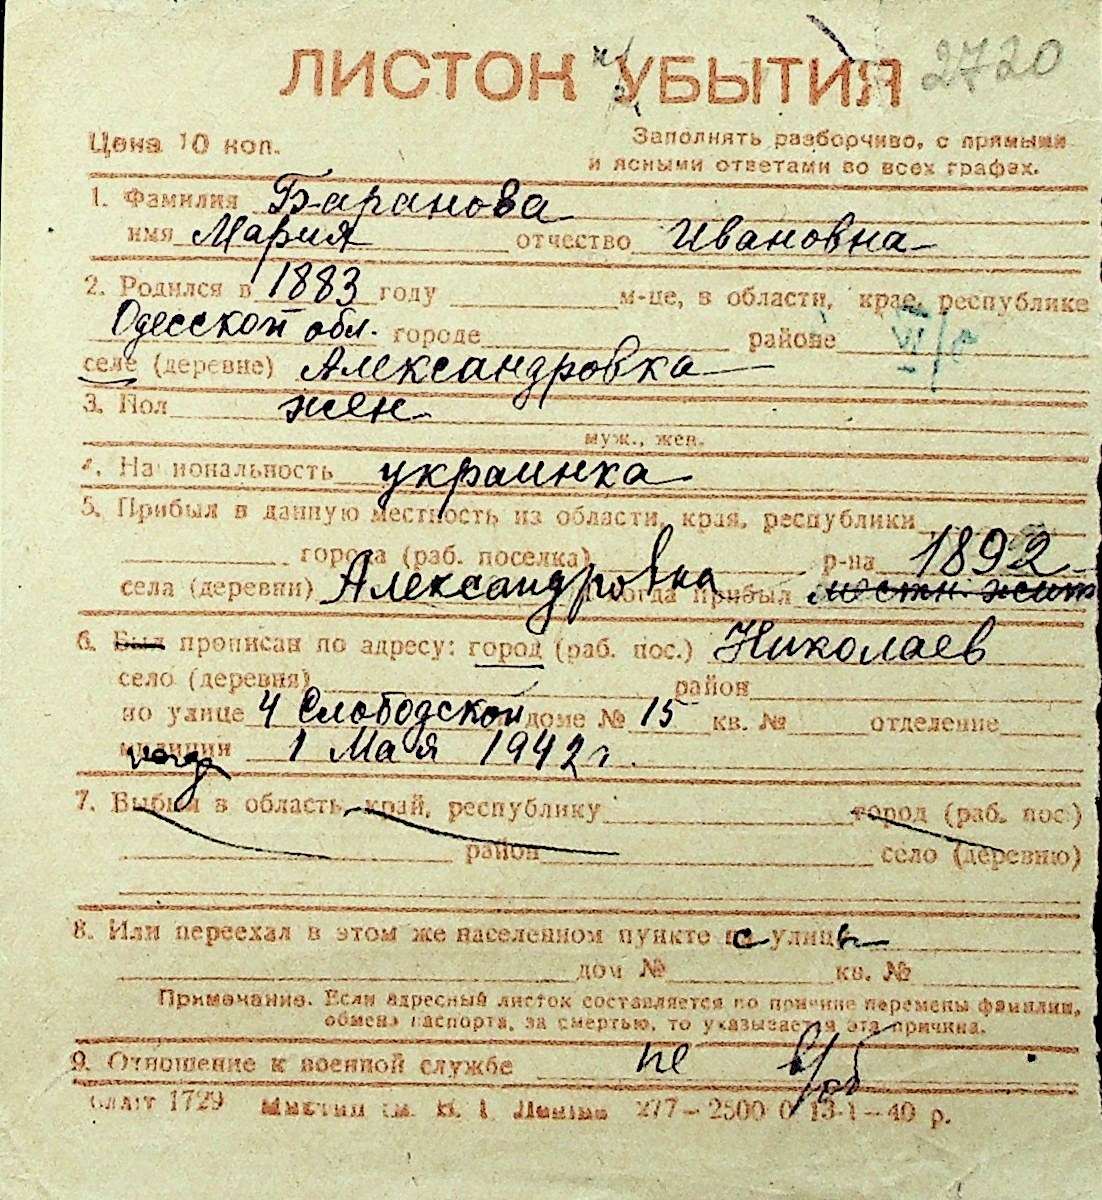 ЛИСТОК УБЫТИЯ 2720
Цена 10 коп. Заполнять разборчиво, с прямыми
и ясными ответами во всех графах.
1. Фамилия Баранова
имя Мария отчество Ивановна
2. Родился в 1883 году м-це, в области, крае, республике
Одесской обл. городе районе
селе (деревне) Александровка
3. Пол жен
муж., жен.
4. Национальность украинка
5. Прибыл в данную местность из области, края, республики
города (раб. поселка) р-на 1892
села (деревни) Александровка когда прибыл местн. жит
6. Был прописан по адресу: город (раб. пос.) Николаев
село (деревня) район
по улице 4 Слободской доме № 15 кв. № отделение
милиции 1 Мая 1942 г.
7. Выбыл в область, край, республику город (раб. пос.)
район село (деревню)
8. Или переехал в этом же населенном пункте с улицы
дом № кв. №
Примечание. Если адресный листок составляется по причине перемены фамилии,
обмена паспорта, за смертью, то указывается эта причина.
9. Отношение к военной службе не в/об
1729 им. В. И. Ленина 277—2500 0 13-1—40 р.